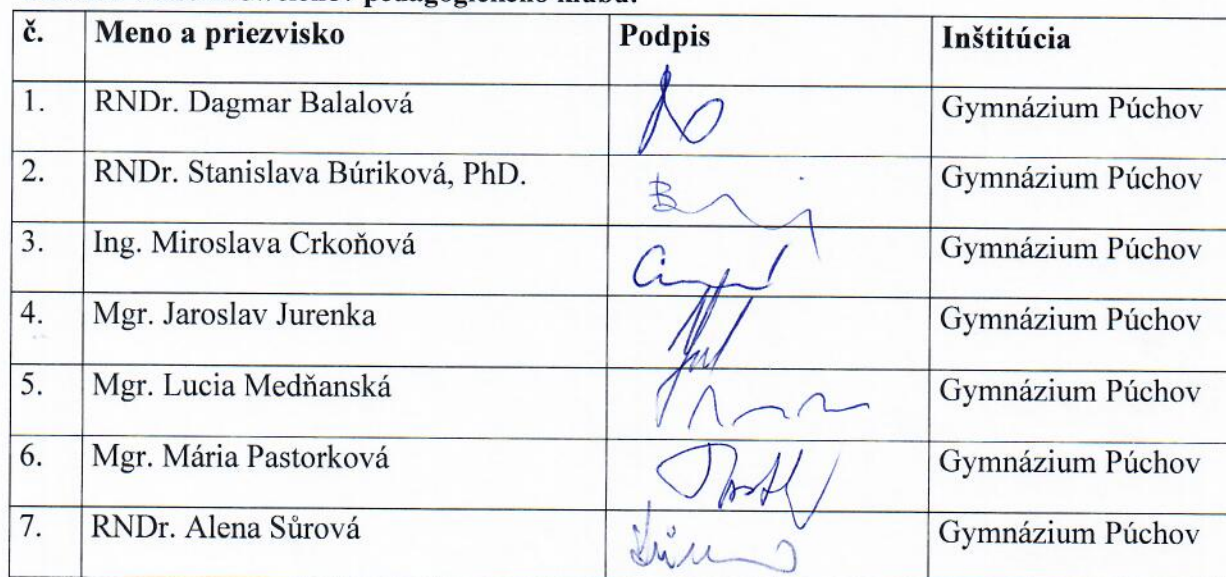 pedagogického klubu:
č. Meno a priezvisko Podpis Inštitúcia
1. RNDr. Dagmar Balalová Gymnázium Púchov
2. RNDr. Stanislava Búriková, PhD. Gymnázium Púchov
3. Ing. Miroslava Crkoňová Gymnázium Púchov
4. Mgr. Jaroslav Jurenka Gymnázium Púchov
5. Mgr. Lucia Medňanská Gymnázium Púchov
6. Mgr. Mária Pastorková Gymnázium Púchov
7. RNDr. Alena Sůrová Gymnázium Púchov